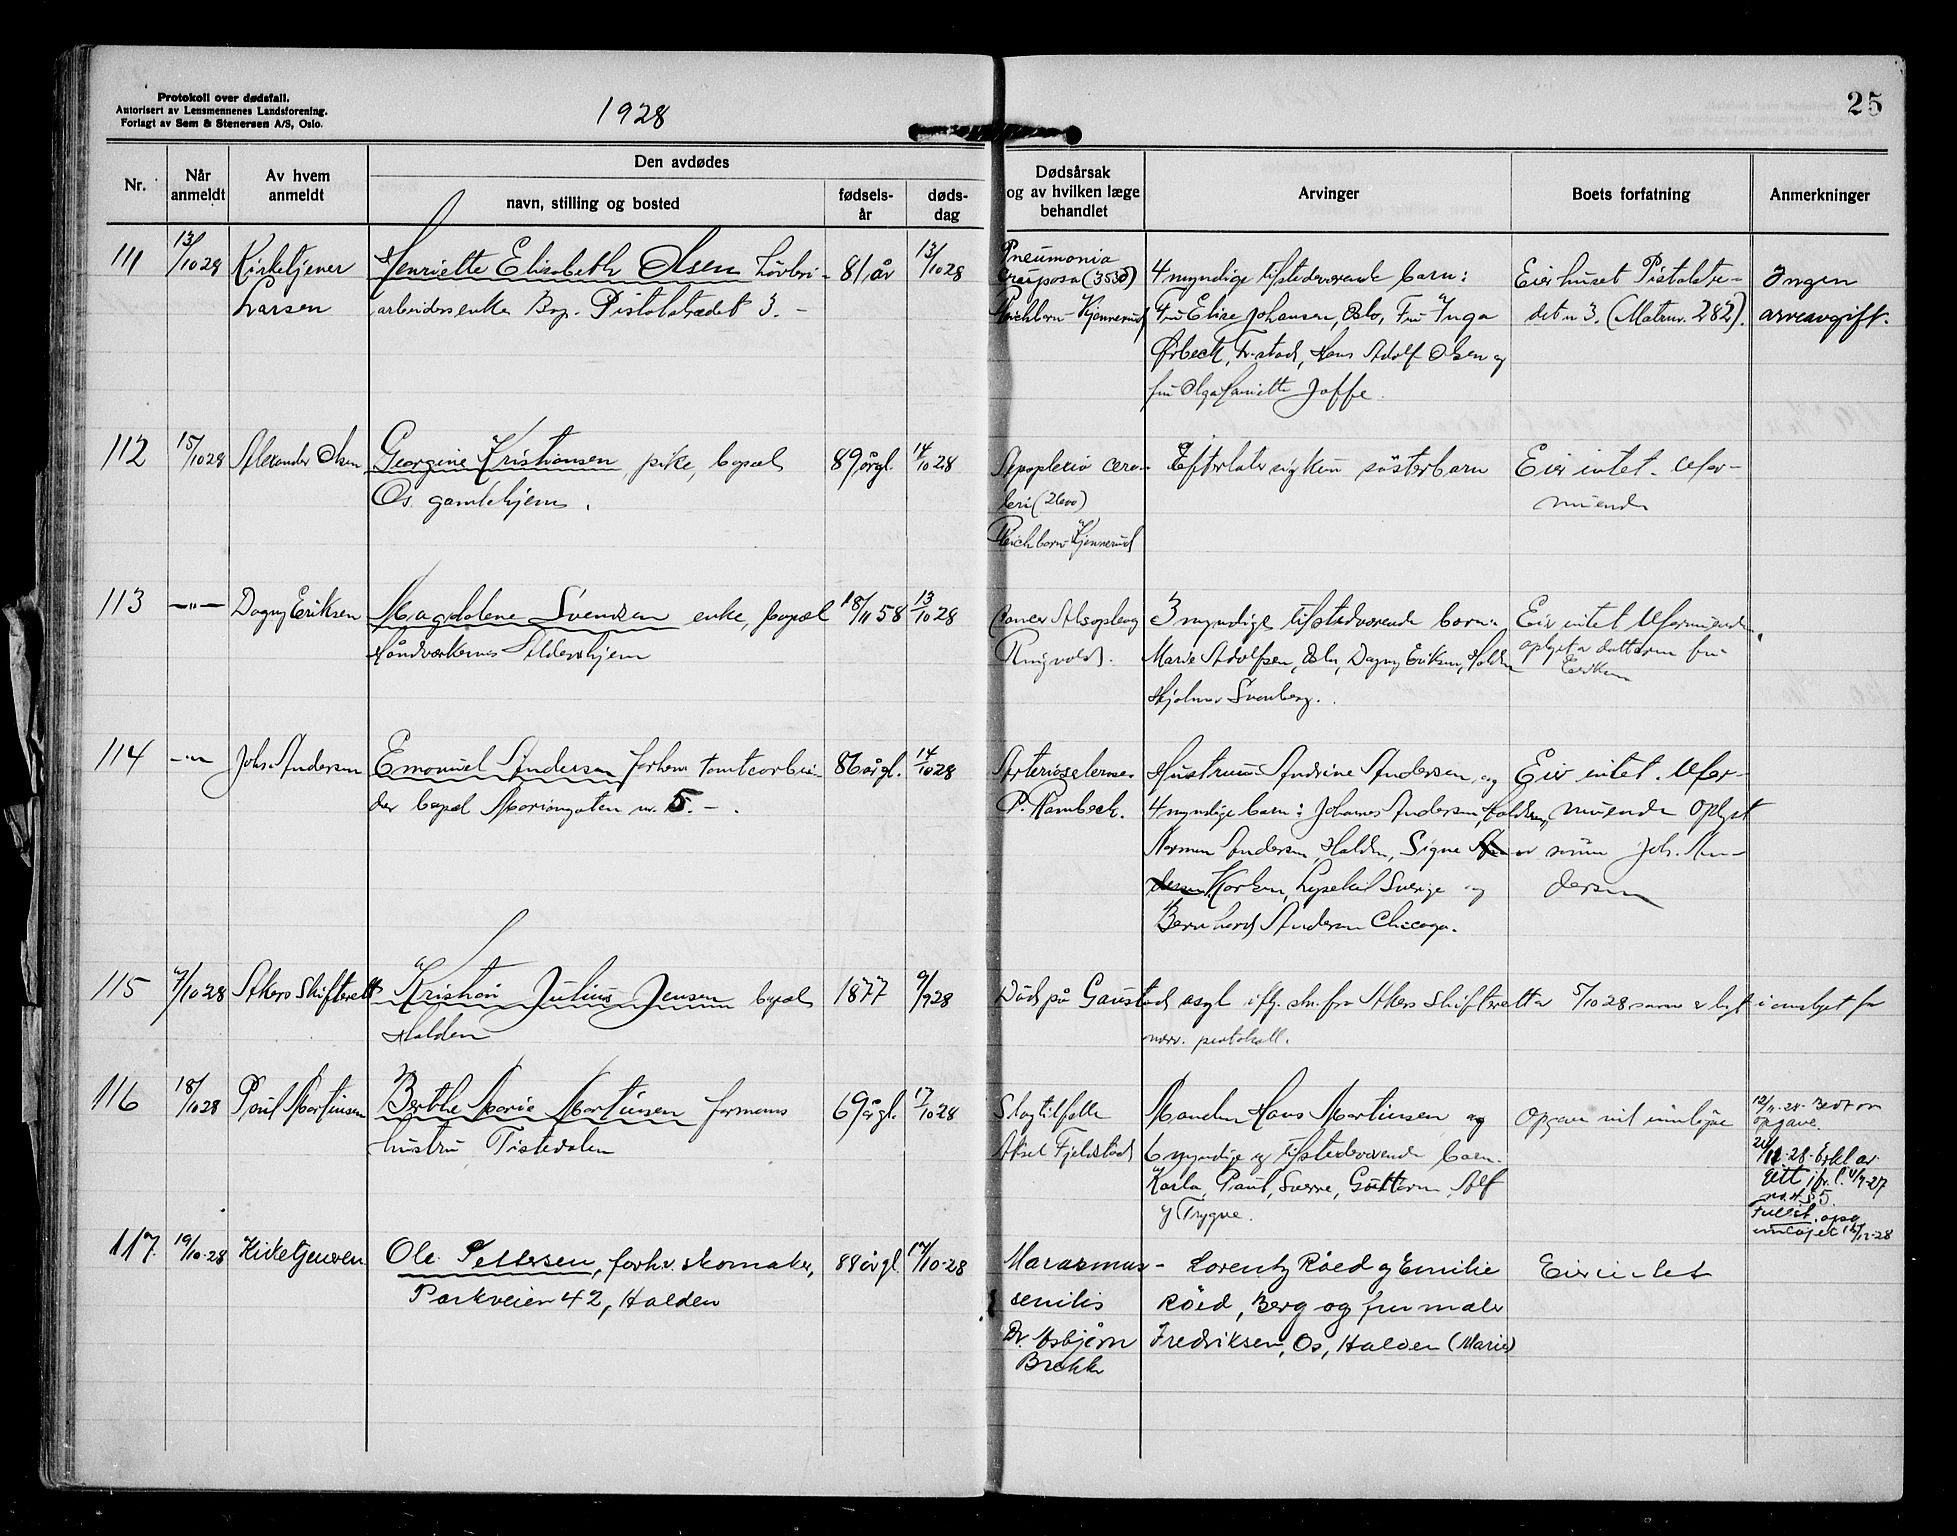 Protokoll over dødsfall.
Autorisert av Lensmennenes Landsforening.
Forlagt av Sem & Stenersen A/S, Oslo.
1928
25
Nr.
Når anmeldt
Av hvem anmeldt
Den avdødes
navn, stilling og bosted
fødsels-år
døds-dag
Dødsårsak og av hvilken læge behandlet
Arvinger
Boets forfatning
Anmerkninger
111
13/10 28
Kirketjener
Larsen
Henriette Elisabeth Olsen
arbeidersenke Bop. Pistolstrædet 3. -
81 år
13/10 28
Pneumonia
crouposa
4 myndige tilstedeværende barn:
Fru Elise Johansen, Oslo, Fru Inga
Ørbeck, Fr.stad, Hans Adolf Olsen og
fru Olga Henriette Joffe.
Eier huset Pistolstræ-
det n 3. (Matrnr. 282).
Ingen
arveavgift.
112
15/10 28
Alexander Olsen
Georgine Kristiansen, pike, bopæl
Os gamlehjem.
89 årgl.
14/10 28
Apoplexia cere-
bri (2600)
Efterlater sig kun søsterbarn
Eier intet. Ufor-
muende
113
-"-
Dagny Eriksen
Magdalene Svendsen enke, bopæl
Håndværkernes Aldershjem
18/11 58
13/10 28
Ringvold.
3 myndige tilstedværende barn:
Marie Adolfsen, Oslo, Dagny Eriksen, Halden
Hjalmar Svenberg.
Eier intet Uformuende
oplyst av datteren fru
Eriksen
114
-"-
Johs. Andersen
Emanuel Andersen forhenv tomtearbei-
der bopæl Mariongaten nr. 5. -
86 årgl.
14/10 28
P. Rambeck.
Hustruen Andrine Andersen, og
4 myndige barn: Johannes Andersen, Halden,
Herman Andersen, Halden, Signe
Karlsen, Lysekil Sverige og
Bernhard Andersen Chicago.
Eier intet. Ufor-
muende oplyst
av sønn Joh. An-
dersen
115
9/10 28
Akers Skifterett
Kristian Julius Jensen bopæl
Halden
1877
9/9 28
Død på Gaustad asyl ifg. skr. fra Akers Skifterett av 5/10 28 som er lagt i omslaget for
nærv. protokoll.
116
18/10 28
Paul Martinsen
Berthe Marie Martinsen formanns
hustru Tistedalen
69 årgl.
17/10 28
Slagtilfelle
Aksel Fjeldstad
Manden Hans Martinsen og
6 myndige og tilstedeværende barn.
Karla, Paul, Sverre, Guttorm, Alf
og Trygve.
Opgave vil innløpe
opgave.
117.
19/10-28
Kirketjeneren
Ole Pettersen, forhv. skomaker,
Parkveien 42, Halden
88 årgl.
17/10-28
Marasmus
senilis
Dr. Asbjørn
Brekke
Lorentz Røed og Emilie
Røed, Berg og fru maler
Fredriksen, Os, Halden (Marie)
Eier intet